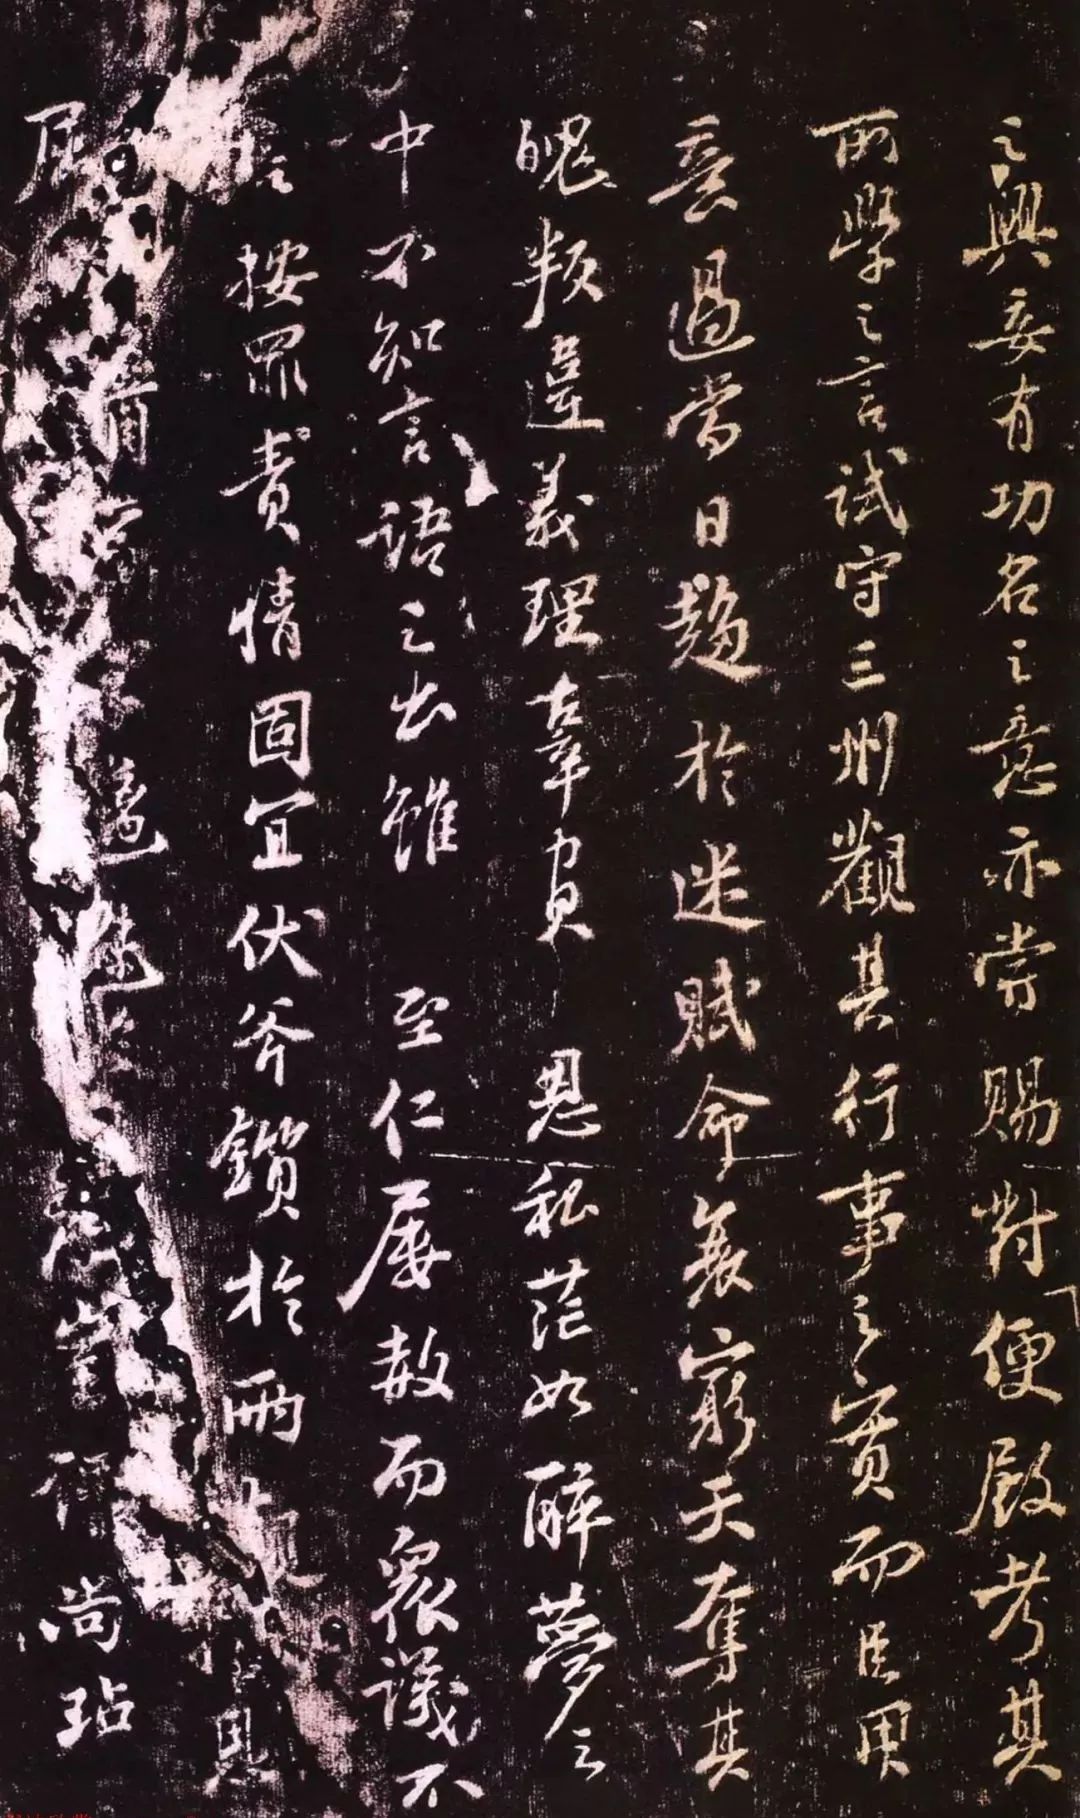 之興妄有功名之意亦嘗賜對便殿考其
所學之言試守三州觀其行事之實而臣用
意過當日趨於迷賦命衰窮天奪其
魄叛違義理辜負 恩私茫如醉夢之
中不知言語之出雖 至仁屢赦而衆議不
按罪責情固宜伏斧鑕於兩 恩
屈 猶當 尚玷